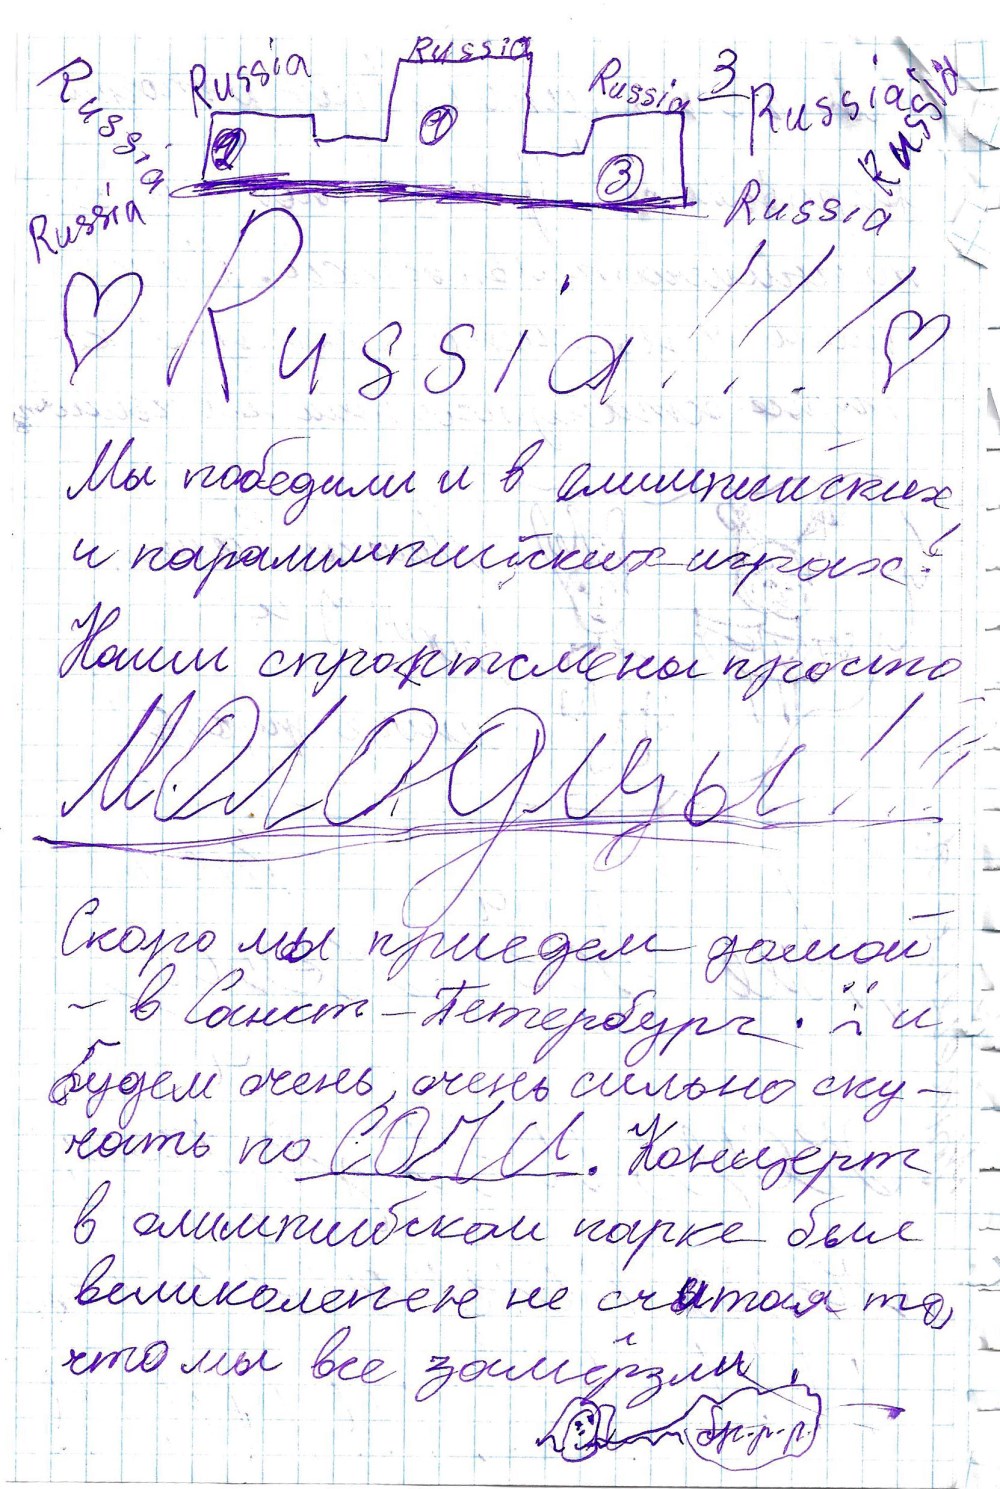 Russia
Russia
Russia
Russia 3 Russia
Russia
2 1 3
Russia
Russia
Russia!!!
Мы победили и в олимпийских
и паралимпийских играх!
Наши спрортсмены просто
МОЛОДЦЫ!!!
Скоро мы приедем домой
– в Санкт-Петербург. и
будем очень, очень сильно ску-
чать по СОЧИ. Концерт
в олимпийском парке был
великолепен не считая то,
что мы все замёрзли.
бр-р-р.